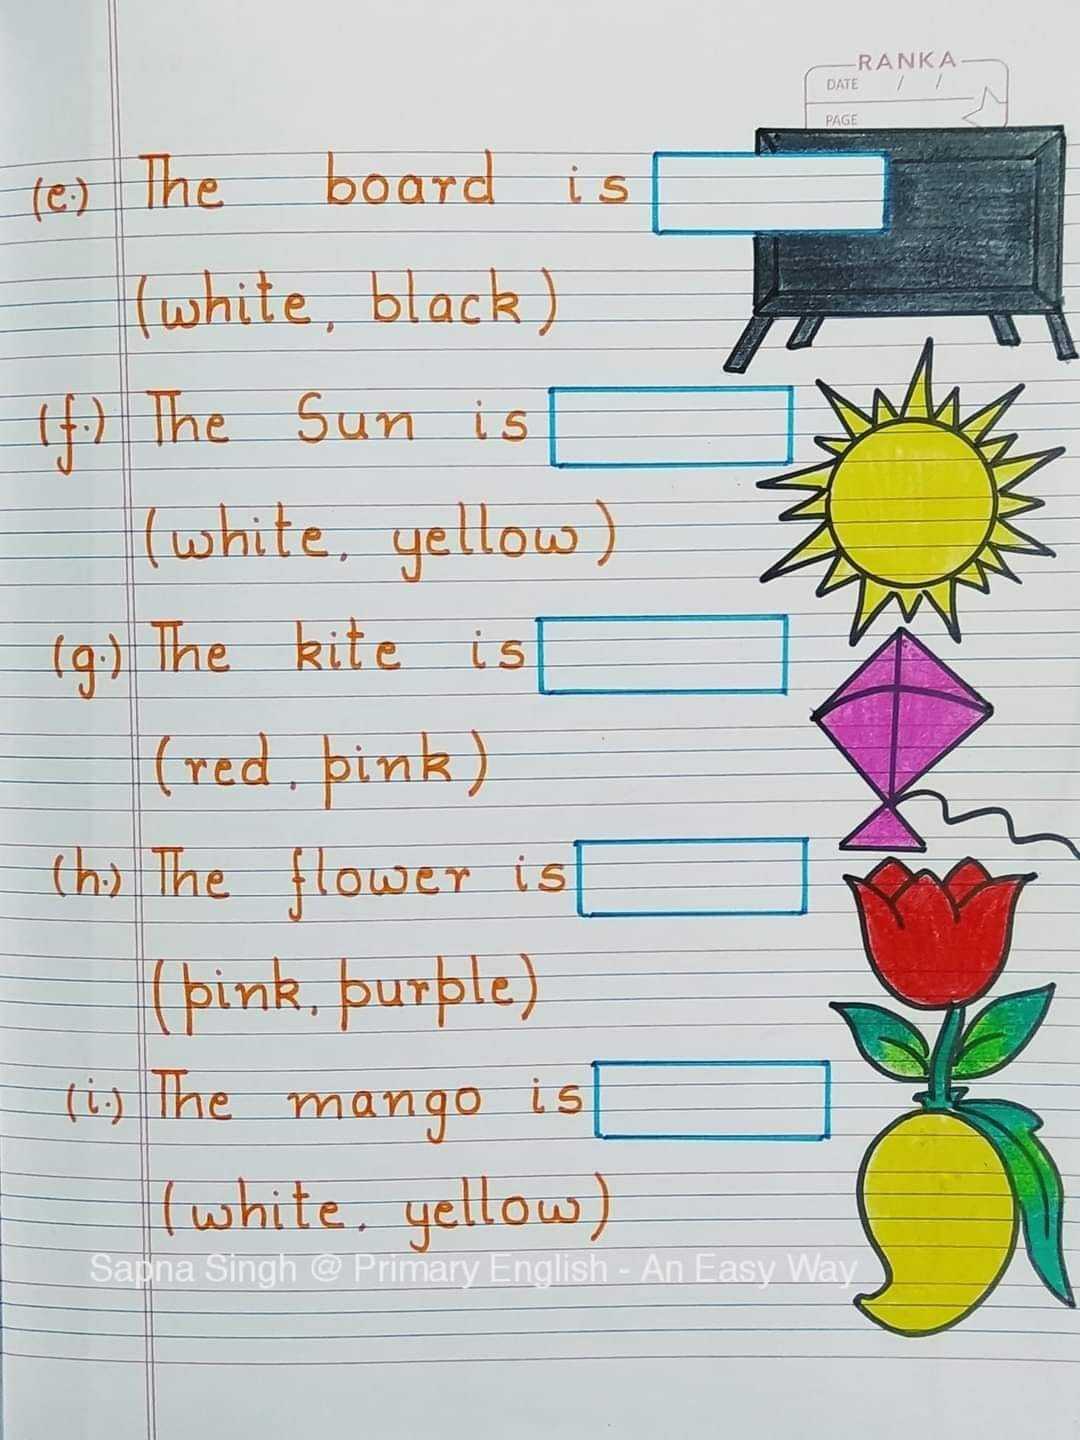 RANKA
DATE / /
PAGE
(e.) The board is
(white, black)
(f.) The Sun is
(white, yellow)
(g.) The kite is
(red, pink)
(h.) The flower is
(pink, purple)
(i.) The mango is
(white, yellow)
Sapna Singh @ Primary English - An Easy Way